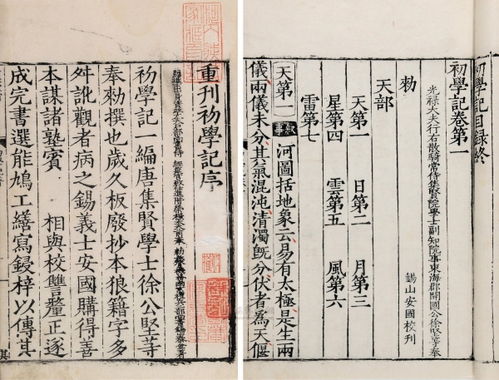 初學記目錄終
初學記卷第一
光祿大夫行右散騎常侍集賢院學士副知院事東海郡開國公徐堅等奉
勑
錫山安國校刊
天部
天第一 日第二 月第三
星第四 雲第五 風第六
雷第七
天第一 敘事 河圖括地象云易有太極是生兩
儀兩儀未分其氣混沌清濁旣分伏者為天偃
重刊初學記序
初學記一編唐集賢學士徐公堅等
奉勑撰也歲久板廢抄本狼籍字多
舛訛觀者病之錫義士安國購得善
本謀諸塾賓 相與校讐釐正逐
成完書選能鳩工繕寫鋟梓以傳其